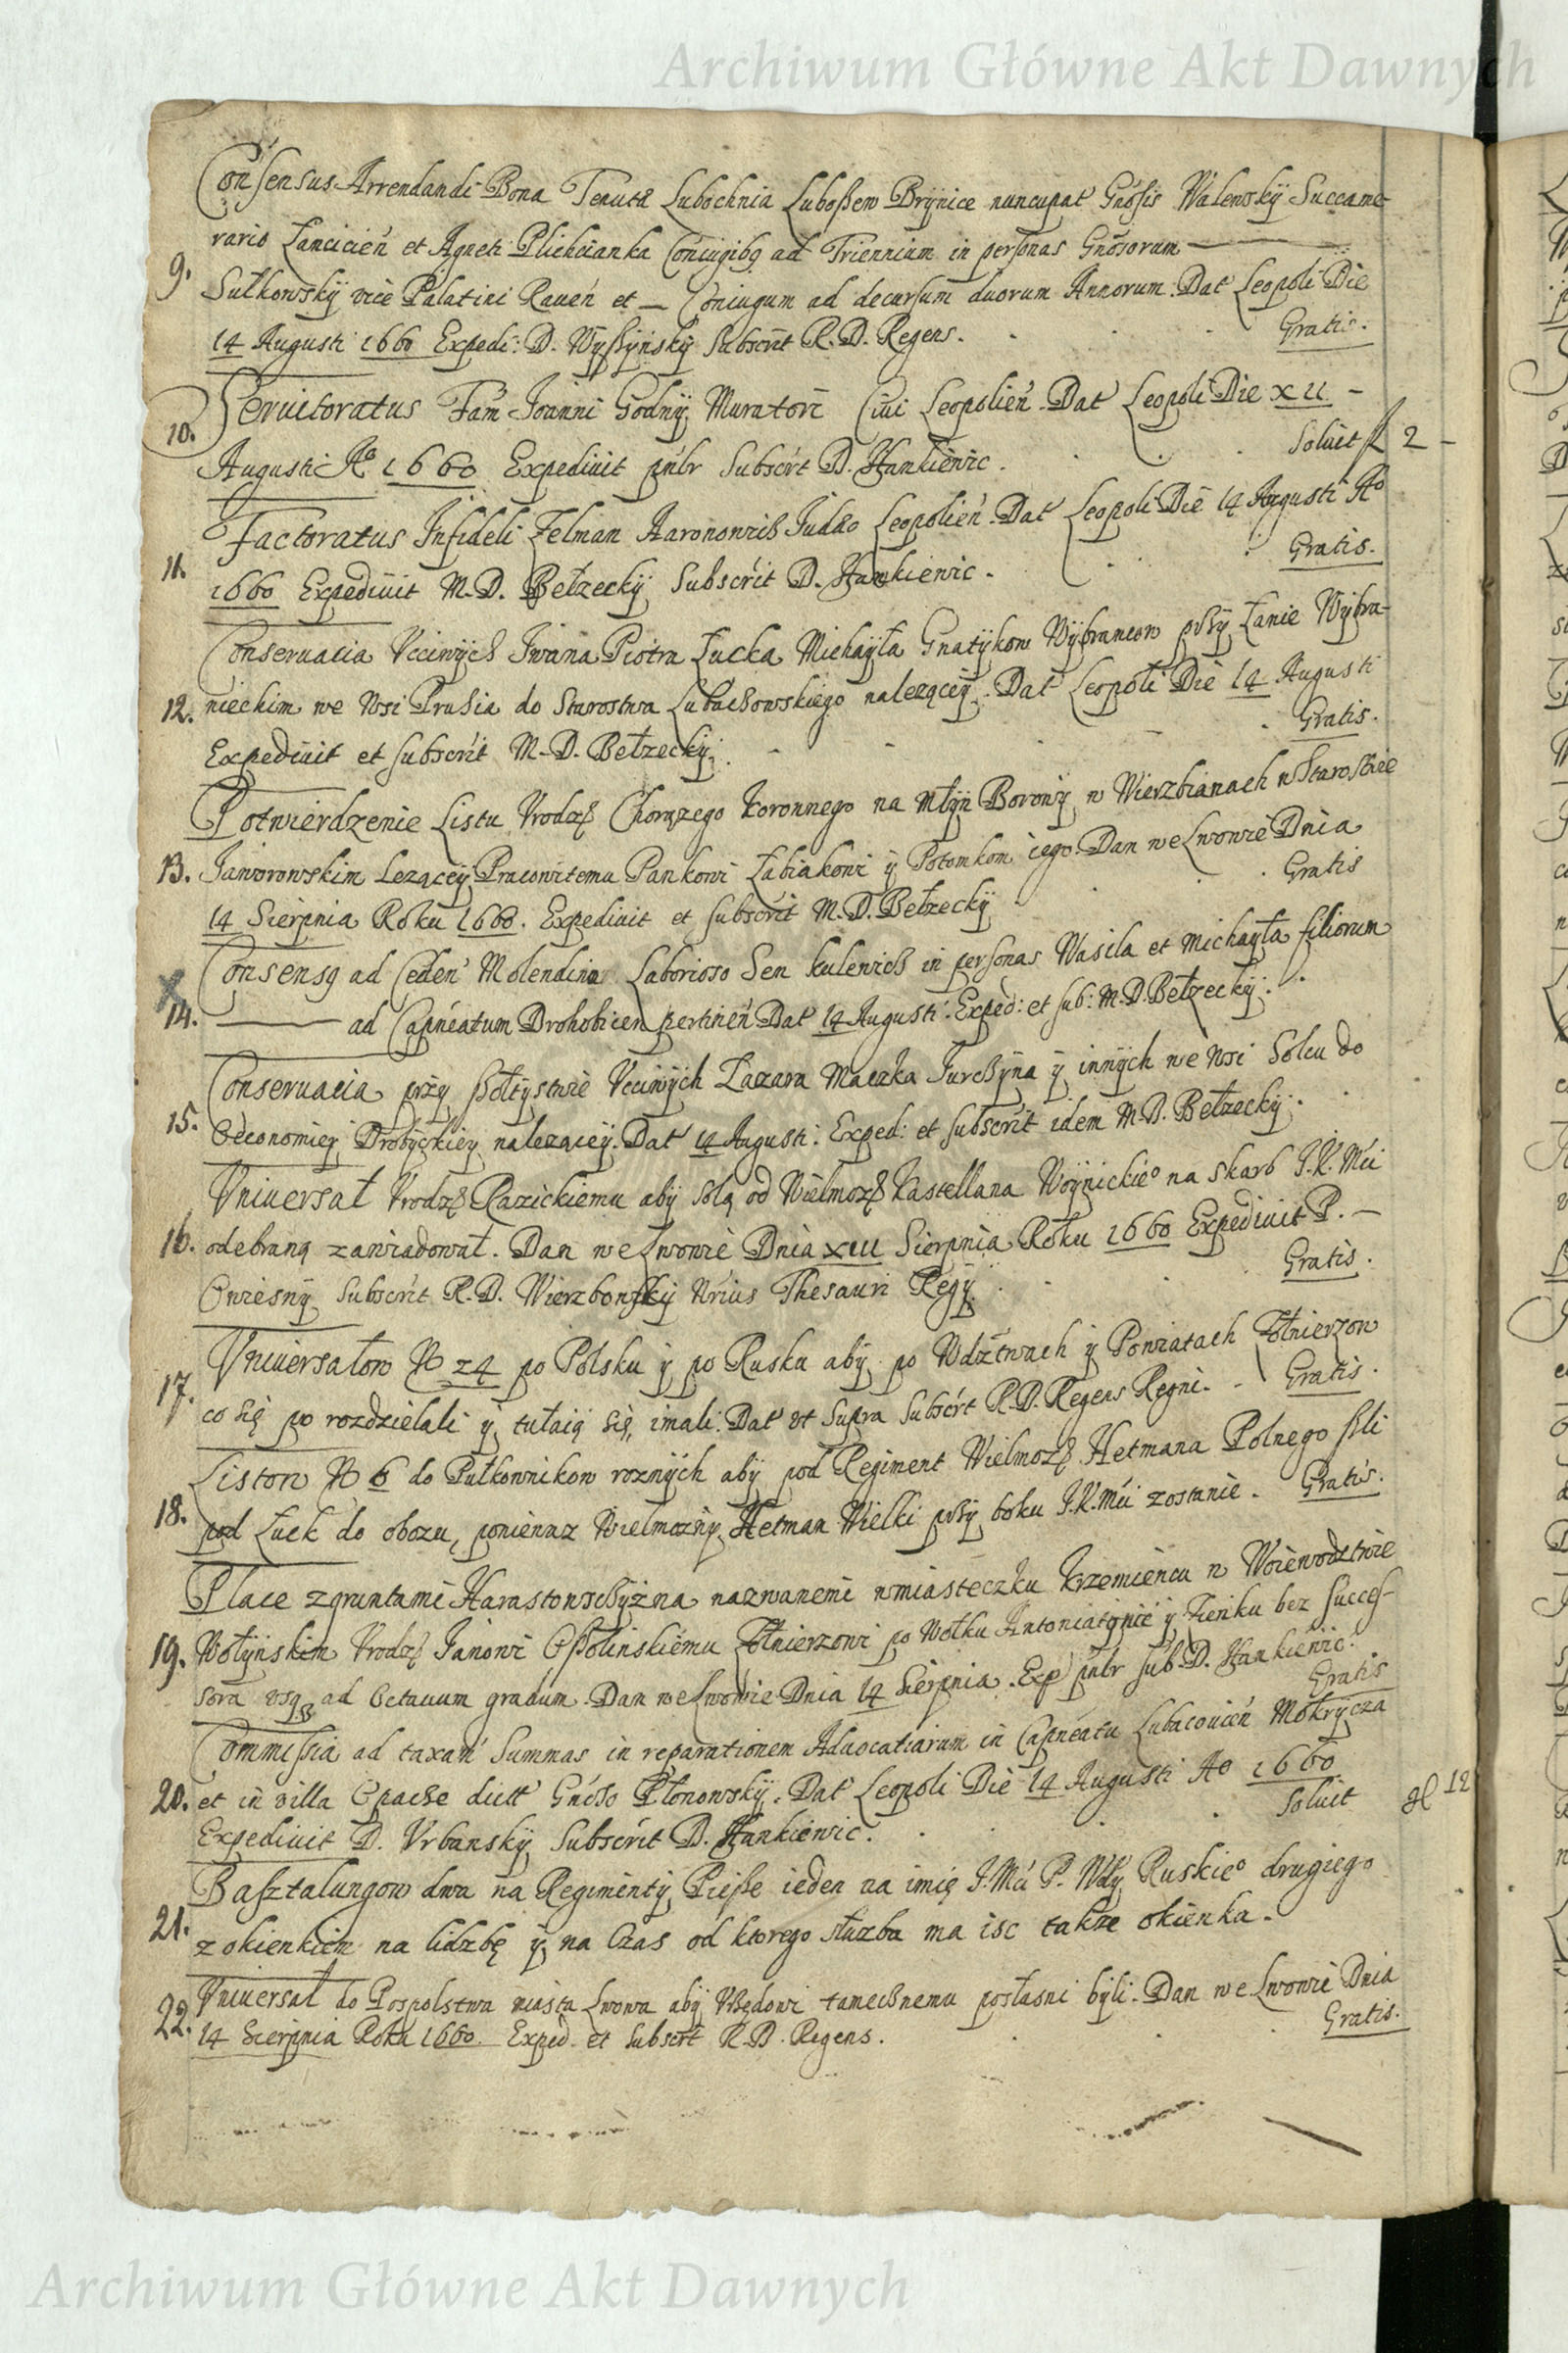 Archiwum Główne Akt Dawnych
Consensus Arrendandi Bona Tenutæ Lubochnia Luboszew Brÿnice nuncupat Gnosis Walewskÿ Succame-
rario Lancicień et Agneti Plichcianka Coniugibq ad Triennium in personas Gnosorum —
9. Sułkowskÿ vice Palatini Raveń et — Coniugum ad decursum duorum Annorum. Dat Leopoli Die
14 Augusti 1660 Expedi: D. Wÿszÿnskÿ Subscrit R. D. Regens. Gratis.
10. Servitoratus Fam Joanni Godnÿ Muratori Civi Leopolień. Dat Leopoli Die XII —
Augusti Ao 1660 Expedivit pnlr Subscrit D. Hankiewic. Soluit f 2 —
11. Factoratus Infideli Zelman Aaronowicz Judæo Leopolień. Dat Leopoli Die 14 Augusti Ao
1660 Expedivit M. D. Bełzeckÿ Subscrit D. Hankiewic. Gratis.
Conservacia Vcciwÿch Iwana Piotra Łucka Michaÿła Gnatÿkow Wÿbrancow przÿ Łanie Wÿbra-
12. nieckim we Wsi Prusia do Starostwa Lubachowskiego naleząceÿ. Dat Leopoli Die 14 Augusti
Expedivit et subscrit M. D. Bełzeckÿ. Gratis.
Potwierdzenie Listu Vrodz Chorązego Koronnego na Młÿn Borowÿ w Wierzbianach w Starostwie
13. Jaworowskim Leząceÿ Pracowitemu Pankowi Łabiakowi ÿ Potomkom iego. Dan we Lwowie Dnia
14 Sierpnia Roku 1660. Expedivit et subscrit M. D. Bełzeckÿ Gratis
Consensq ad Cedeń Molendina Laborioso Sen kulewicz in personas Wasila et Michaÿła filiorum
14. — ad Capneatum Drohobicen pertineń Dat 14 Augusti. Exped: et sub: M. D. Bełzeckÿ.
Conservacia przÿ szołtÿstwie Vcciwÿch Łazara Maczka Jurczÿna ÿ innÿch we Wsi Solcu do
15. Oeconomieÿ Drobÿckieÿ nalezaceÿ. Dat 14 Augusti. Exped: et subscrit idem M. D. Bełzeckÿ.
Vniversał Vrodz Razickiemu abÿ solą od Wielmoz Kastellana Woÿnickieo na skarb J. K. Mći
16. odebraną zawiadował. Dan we Lwowie Dnia XIII Sierpnia Roku 1660 Expedivit P. —
Cwiesnÿ Subscrit R. D. Wierzbowskÿ Nrius Thesauri Regÿ. Gratis.
Vniversałow N 24 po Polsku ÿ po Rusku abÿ po Wdztwach ÿ Powiatach Żołnierzow
17. co się po rozdzielali ÿ tułaią się, imali. Dat vt supra subscrit R. D. Regens Regni. Gratis.
Listow N 6 do Pułkownikow roznÿch abÿ pod Regiment Wielmoz Hetmana Polnego szli
18. pod Łuck do obozu, poniewaz Wielmoznÿ Hetman Wielki przÿ boku J. K. Mći zostanie. Gratis.
Place z gruntami Harastowsczÿzna nazwanemi w miasteczku Krzemieńcu w Woiewodztwie
19. Wołÿnskim Vrodz Janowi Opolinskiemu Żołnierzowi po Wołku Antoniatÿnie ÿ Zieńku bez succes-
sora vsq ad Octavum gradum. Dan we Lwowie Dnia 14 Sierpnia. Exp pnlr sub. D. Hankiewic.
Gratis
Commissia ad taxań Summas in reparationem Advocatiarum in Capneatu Lubacovień Mokrÿcza
20. et in villa Opacze dict Gnoso Płonowskÿ. Dat Leopoli Die 14 Augusti Ao 1660
Expedivit D. Vrbanskÿ Subscrit D. Hankiewic. Soluit 12
Basztalungow dwa na Regimentÿ Piesze ieden na imię J. Mci P. Wdÿ Ruskieo drugiego
21. z okienkiem na lidzbę ÿ na Czas od ktorego słuzba ma isc takze okienka.
Vniversał do Pospolstwa miasta Lwowa abÿ Vrzędowi tamecznemu posłusni bÿli. Dan we Lwowie Dnia
22. 14 Sierpnia Roku 1660. Exped. et Subscrit R. D. Regens. Gratis.
Archiwum Główne Akt Dawnych